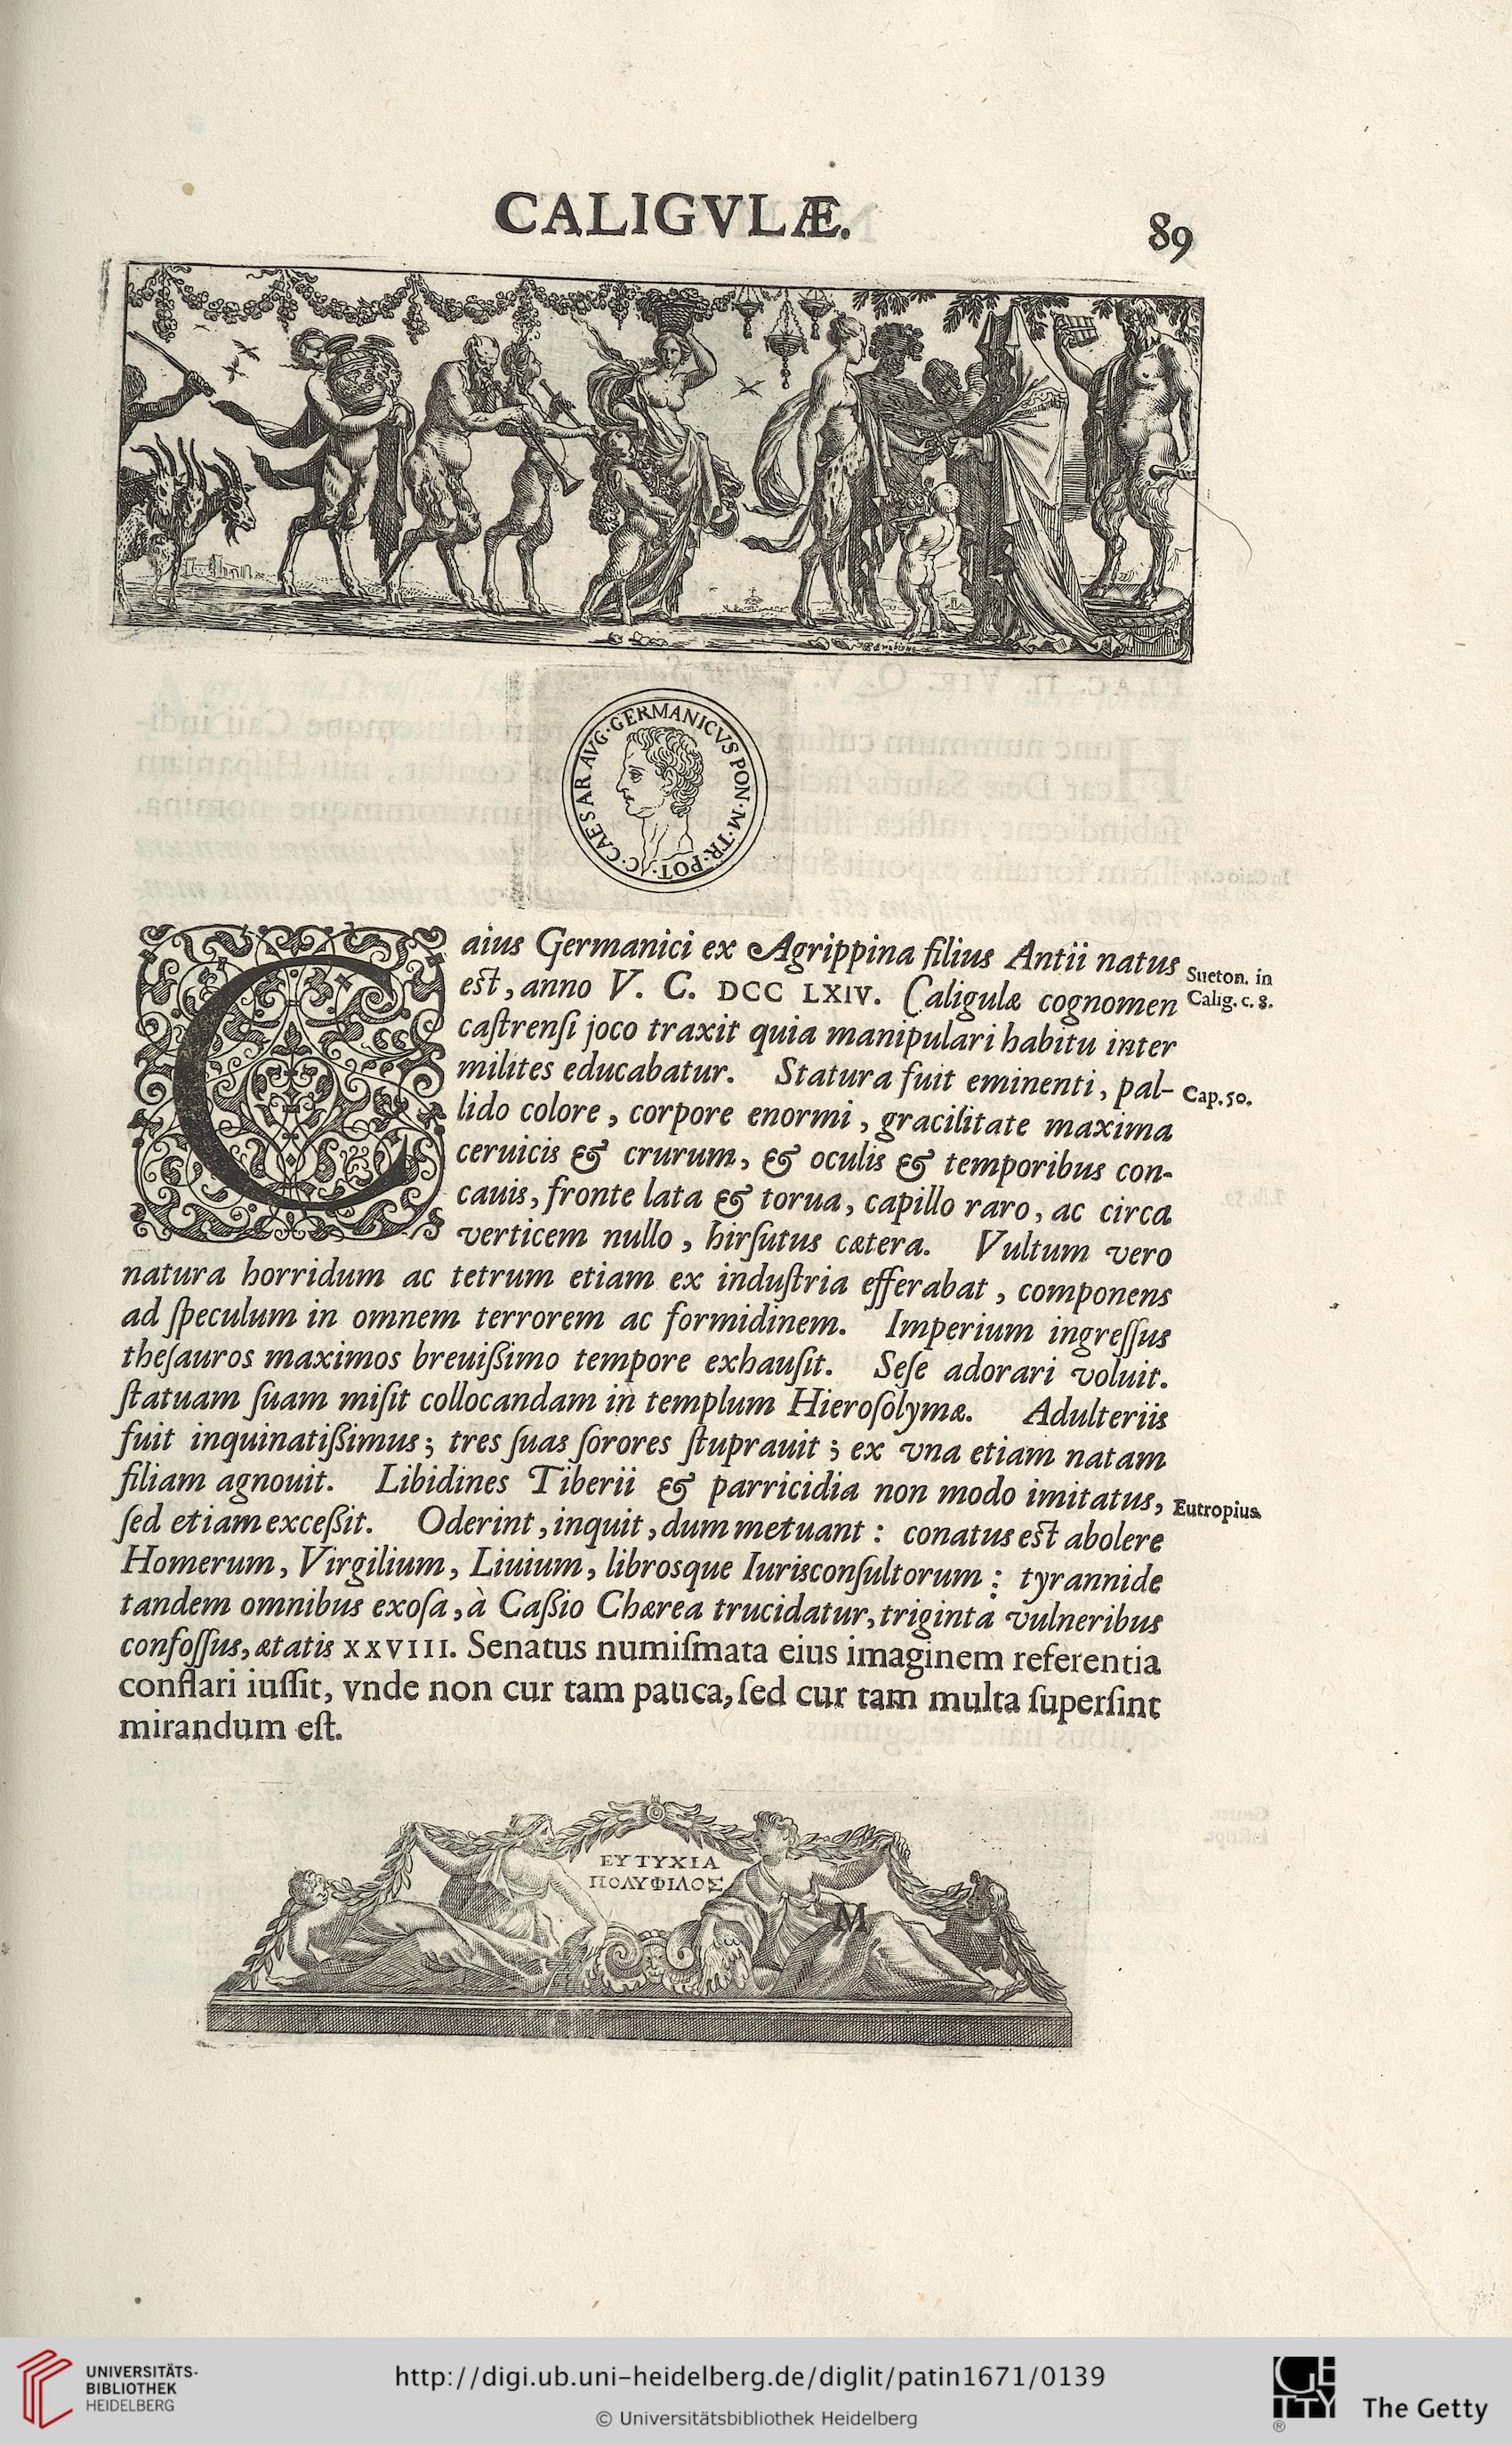 CALIGVLÆ.
89
C·CAESAR AVG·GERMANICVS PON·M·TR·POT·
Caius Germanici ex Agrippina filius Antii natus
Sueton. in
est, anno V. C. DCC LXIV. Caligulæ cognomen
Calig. c. 8.
caſtrenſi joco traxit quia manipulari habitu inter
milites educabatur. Statura fuit eminenti, pal-
Cap. 50.
lido colore, corpore enormi, gracilitate maxima
ceruicis & crurum, & oculis & temporibus con-
cauis, fronte lata & torua, capillo raro, ac circa
verticem nullo, hirſutus cætera. Vultum vero
natura horridum ac tetrum etiam ex induſtria efferabat, componens
ad ſpeculum in omnem terrorem ac formidinem. Imperium ingreſſus
theſauros maximos breuißimo tempore exhauſit. Seſe adorari voluit.
ſtatuam ſuam miſit collocandam in templum Hieroſolymæ. Adulteriis
fuit inquinatißimus; tres ſuas ſorores ſtuprauit; ex vna etiam natam
filiam agnouit. Libidines Tiberii & parricidia non modo imitatus,
Eutropius.
ſed etiam exceßit. Oderint, inquit, dum metuant: conatus eſt abolere
Homerum, Virgilium, Liuium, librosque Iurisconſultorum: tyrannide
tandem omnibus exoſa, à Caßio Chærea trucidatur, triginta vulneribus
confoſſus, ætatis XXVIII. Senatus numiſmata eius imaginem referentia
conflari iuſſit, vnde non cur tam pauca, ſed cur tam multa ſuperſint
mirandum eſt.
ΕΥΤΥΧΙΑ
ΠΟΛΥΦΙΛΟΣ
M
UNIVERSITÄTS-
BIBLIOTHEK
HEIDELBERG
http://digi.ub.uni-heidelberg.de/diglit/patin1671/0139
© Universitätsbibliothek Heidelberg
GETTY
®
The Getty